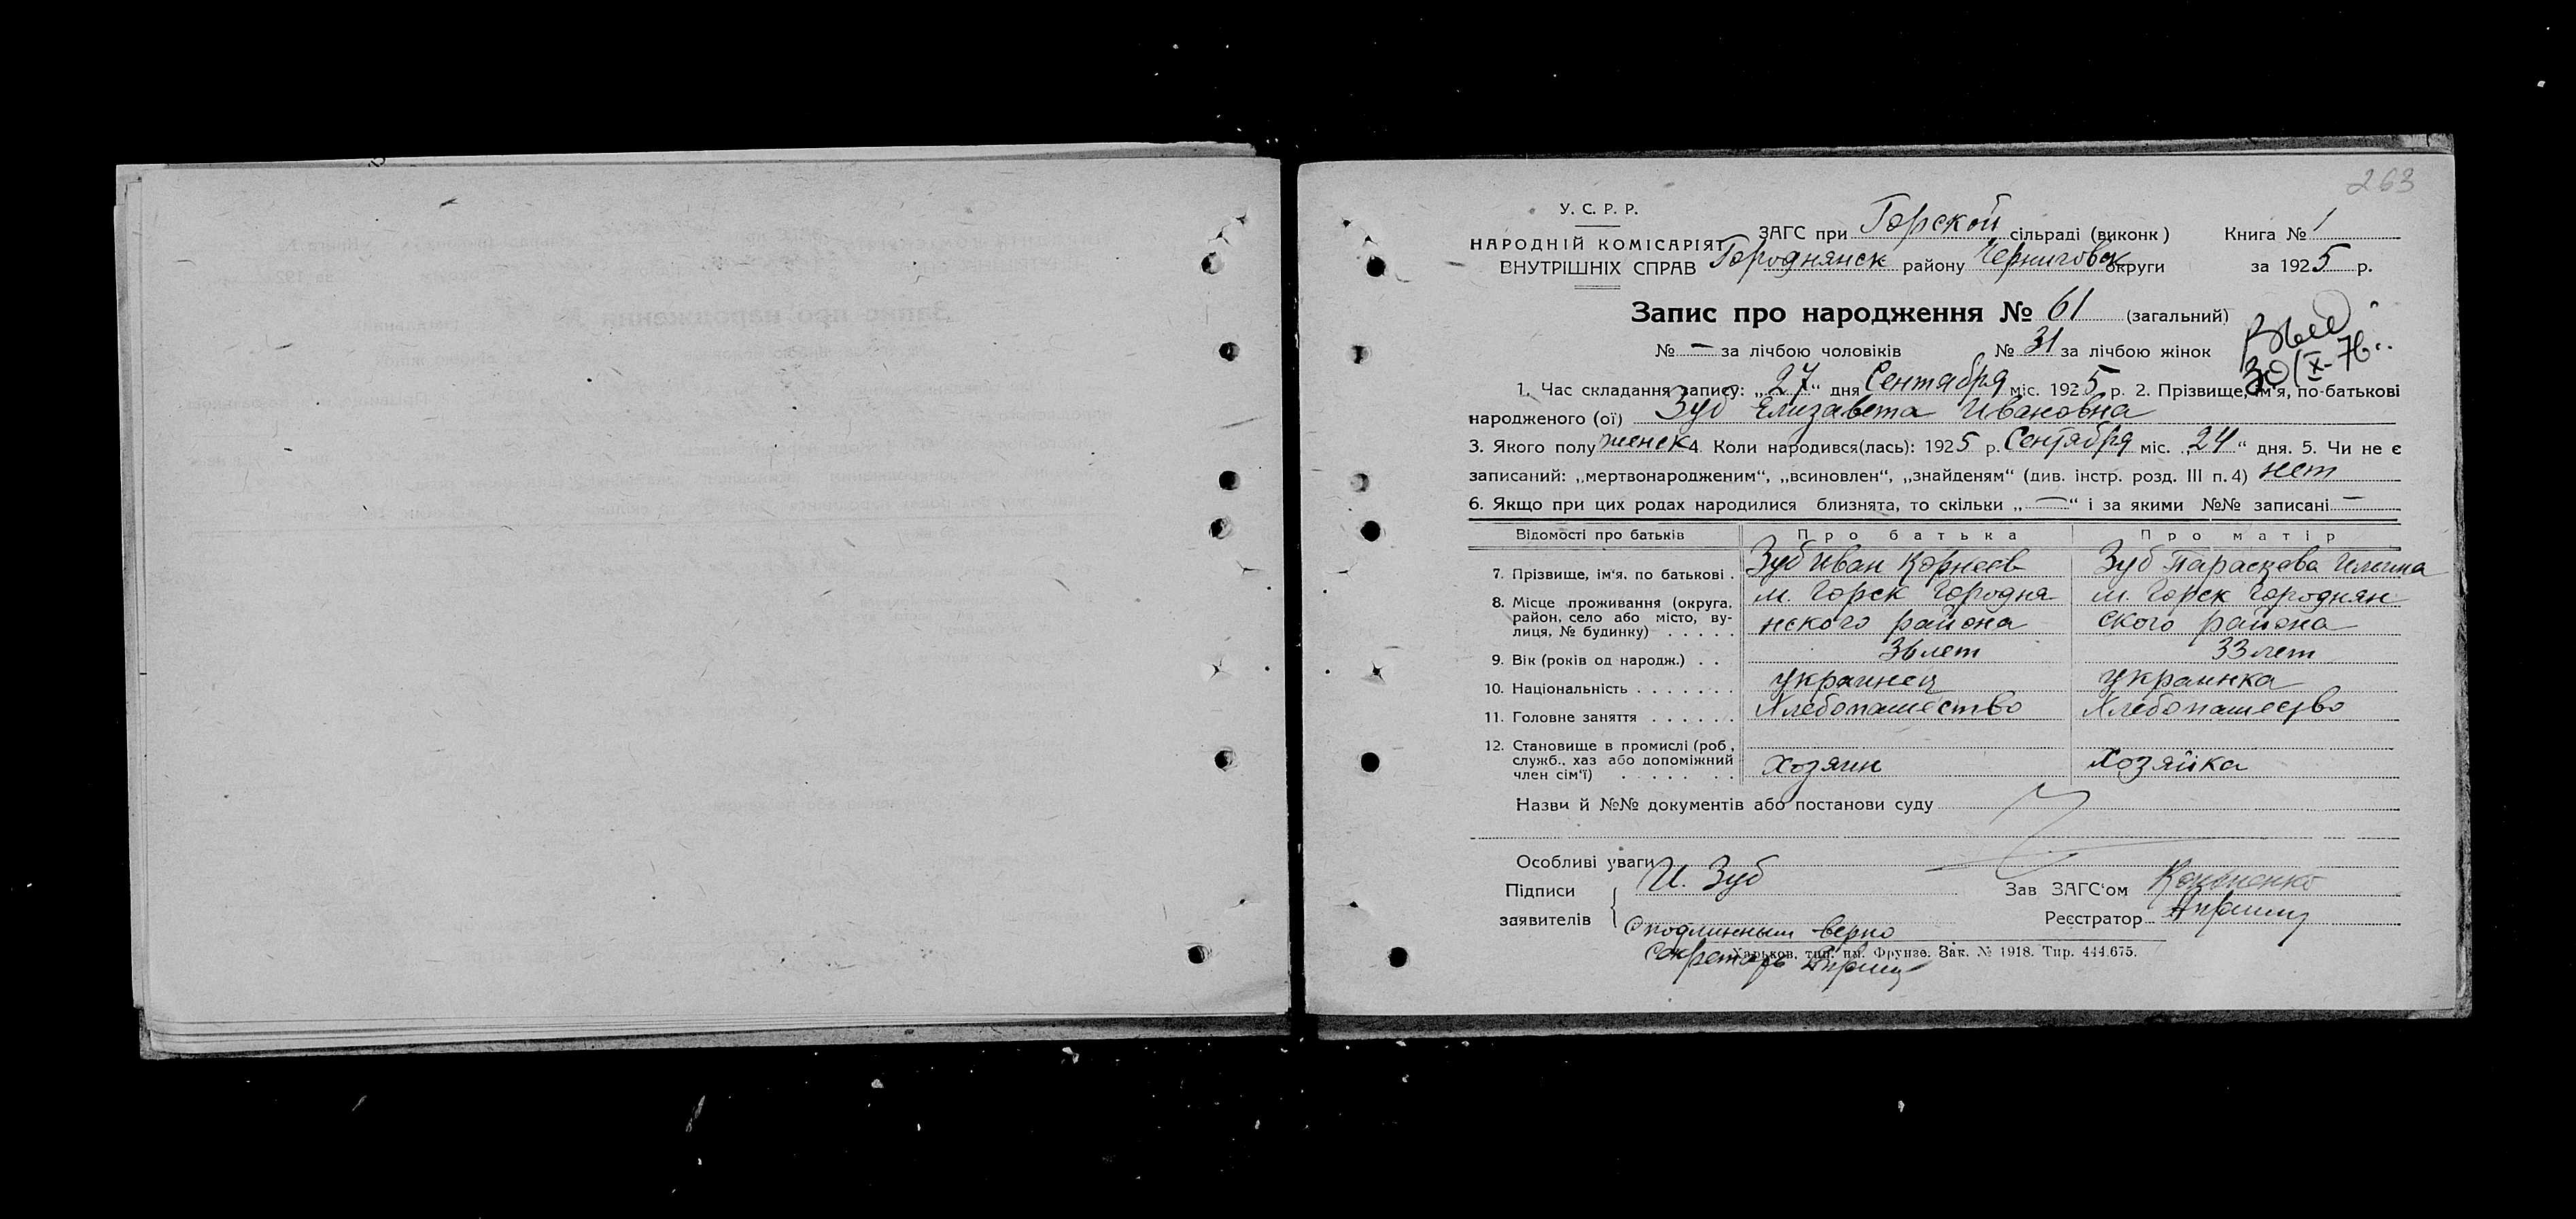 263
У. С. Р. Р.
НАРОДНІЙ КОМІСАРІЯТ
ВНУТРІШНІХ СПРАВ
ЗАГС при Горской сільраді (виконк) Книга № 1
Городнянск району Черниговск округи за 1925 р.
Запис про народження № 61 (загальний)
№ — за лічбою чоловіків № 31 за лічбою жінок
30/X-76
1. Час складання запису: „27“ дня Сентября міс. 1925 р. 2. Прізвище, ім'я, по-батькові
народженого (ої) Зуб Елизавета Ивановна
3. Якого полу женск 4. Коли народився(лась): 1925 р. Сентября міс. „24“ дня. 5. Чи не є
записаний: „мертвонародженим“, „всиновлен“, „знайденям“ (див. інстр. розд. III п. 4) нет
6. Якщо при цих родах народилися близнята, то скільки „—“ і за якими №№ записані —
Відомості про батьків Про батька Про матір
7. Прізвище, ім'я, по батькові . Зуб Иван Корнеев Зуб Параскева Ильина
8. Місце проживання (округа, м. Горск Городня- м. Горск Городнян
район, село або місто, ву-
лиця, № будинку) . . . . . нского района ского района
9. Вік (років од народж.) . . 36 лет 33 лет
10. Національність . . . . . . . украинец украинка
11. Головне заняття . . . . . . Хлебопашество Хлебопашество
12. Становище в промислі (роб,
служб., хаз або допоміжний
член сім'ї) . . . . . . . хозяин Хозяйка
Назви й №№ документів або постанови суду
Особливі уваги
Підписи
заявителів
И. Зуб
Зав ЗАГС'ом Кононенко
Реєстратор
С подлинным верно
Секретарь
Харьков, тип. им. Фрунзе. Зак. № 1918. Тир. 444.675.